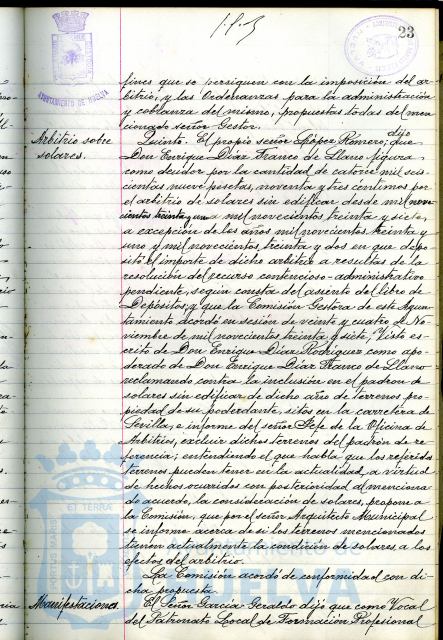 23
AYUNTAMIENTO DE HUELVA
fines que se persiguen con la imposición del ar-
bitrio, y las Ordenanzas para la administración
y cobranza del mismo, propuestas todas del men-
cionado señor Gestor.
Arbitrio sobre
solares.
Quinto. El propio señor López Romero; dijo que
Don Enrique Díaz Franco de Llano figura
como deudor por la cantidad de catorce mil seis-
cientas nueve pesetas, noventa y tres céntimos por
el arbitrio de solares sin edificar desde mil nove-
cientos treinta y uno a mil novecientos treinta y siete,
a excepción de los años mil novecientos treinta y
uno y mil novecientos treinta y dos en que depo-
sitó el importe de dicho arbitrio a resultas de la
resolución del recurso contencioso-administrativo
pendiente, según consta del asiento del libro de
Depósitos; y que la Comisión Gestora de este Ayun-
tamiento acordó en sesión de veinte y cuatro de No-
viembre de mil novecientos treinta y siete, visto es-
crito de Don Enrique Díaz Rodríguez como apo-
derado de Don Enrique Díaz Franco de Llano
reclamando contra la inclusión en el padron de
solares sin edificar de dicho año de terrenos pro-
piedad de su poderdante, sitos en la carretera de
Sevilla, e informe del señor Jefe de la Oficina de
Arbitrios, excluir dichos terrenos del padrón de re-
ferencia; entendiendo el que habla que los referidos
terrenos pueden tener en la actualidad, a virtud
de hechos ocurridos con posterioridad al menciona-
do acuerdo, la consideración de solares, propone a
la Comisión, que por el señor Arquitecto Municipal
se informe acerca de si los terrenos mencionados
tienen actualmente la condición de solares a los
efectos del arbitrio.
La Comisión acordó de conformidad con di-
cha propuesta.
Manifestaciones.
El Señor García Geraldo dijo que como Vocal
del Patronato Local de Formación Profesional